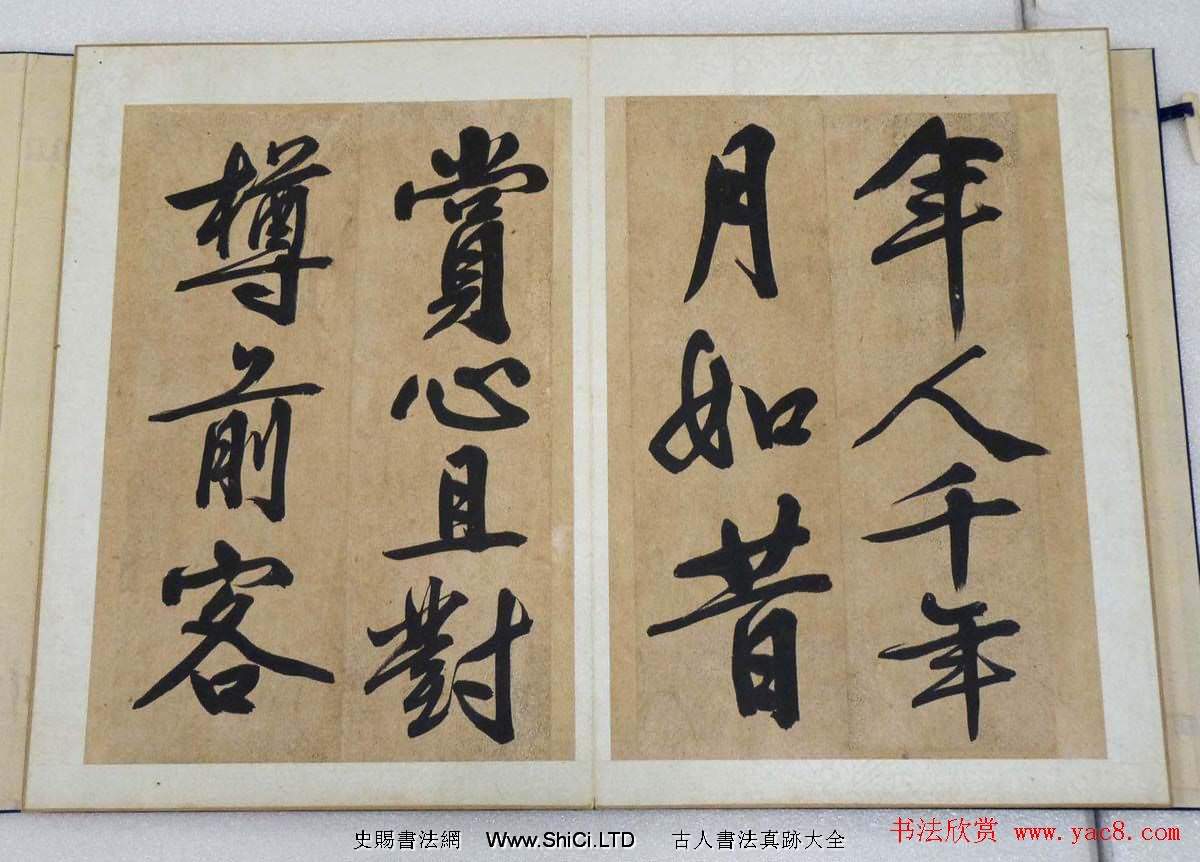 年人千年
月如昔
賞心且對
樽前客
史賜書法網 Www.ShiCi.LTD 古人書法真跡大全
书法欣赏 www.yac8.com